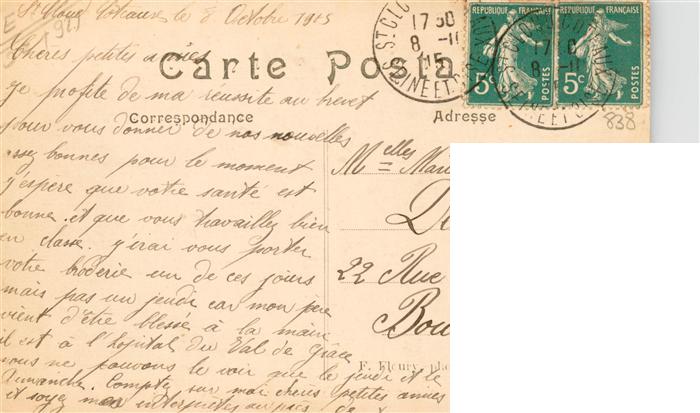 St Cloud Coteaux le 8 Octobre 1915
Chères petites amies
Carte Posta
Je profite de ma réussite au brevet
Correspondance
pour vous donner de nos nouvelles
assez bonnes pour le moment
j'espère que votre santé est
bonne et que vous travaillez bien
en classe. J'irai vous porter
votre broderie un de ces jours
mais pas un jeudi car mon père
vient d'être blessé à la main
il est à l'hopital du Val de Grâce
nous ne pouvons le voir que le jeudi et le
Dimanche. Comptez sur moi chères petites amies
et soyez mes interprètes auprès de
17 30
8 - 11
15
REPUBLIQUE FRANÇAISE
5c
POSTES
REPUBLIQUE FRANÇAISE
5c
POSTES
838
Adresse
Melles Mari
22 Rue
Bou
F. Fleury